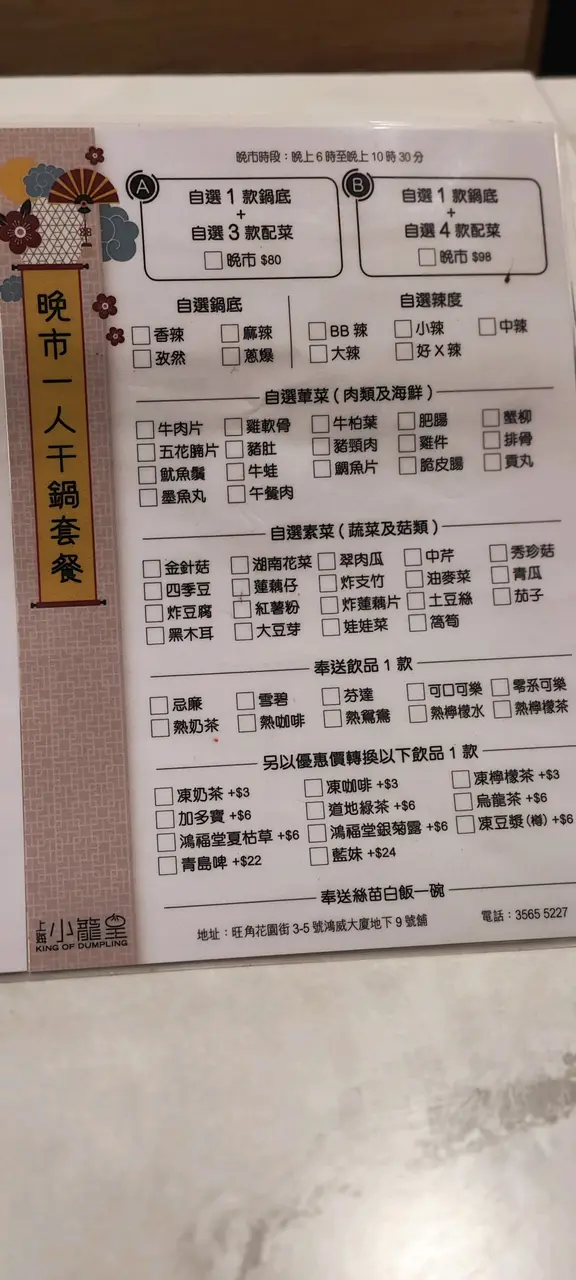 晚市時段：晚上 6 時至晚上 10 時 30 分
A
自選 1 款鍋底
+
自選 3 款配菜
晚市 $80
B
自選 1 款鍋底
+
自選 4 款配菜
晚市 $98
晚市一人干鍋套餐
自選鍋底
香辣 麻辣
孜然 蔥爆
自選辣度
BB 辣 小辣 中辣
大辣 好 X 辣
自選葷菜 ( 肉類及海鮮 )
牛肉片 雞軟骨 牛柏葉 肥腸 蟹柳
五花腩片 豬肚 豬頸肉 雞件 排骨
魷魚鬚 牛蛙 鯛魚片 脆皮腸 貢丸
墨魚丸 午餐肉
自選素菜 ( 蔬菜及菇類 )
金針菇 湖南花菜 翠肉瓜 中芹 秀珍菇
四季豆 蓮藕仔 炸支竹 油麥菜 青瓜
炸豆腐 紅薯粉 炸蓮藕片 土豆絲 茄子
黑木耳 大豆芽 娃娃菜 萵筍
奉送飲品 1 款
忌廉 雪碧 芬達 可口可樂 零系可樂
熱奶茶 熱咖啡 熱鴛鴦 熱檸檬水 熱檸檬茶
另以優惠價轉換以下飲品 1 款
凍奶茶 +$3 凍咖啡 +$3 凍檸檬茶 +$3
加多寶 +$6 道地綠茶 +$6 烏龍茶 +$6
鴻福堂夏枯草 +$6 鴻福堂銀菊露 +$6 凍豆漿 (樽) +$6
青島啤 +$22 藍妹 +$24
奉送絲苗白飯一碗
上海小龍皇
KING OF DUMPLING
地址：旺角花園街 3-5 號鴻威大廈地下 9 號舖 電話：3565 5227